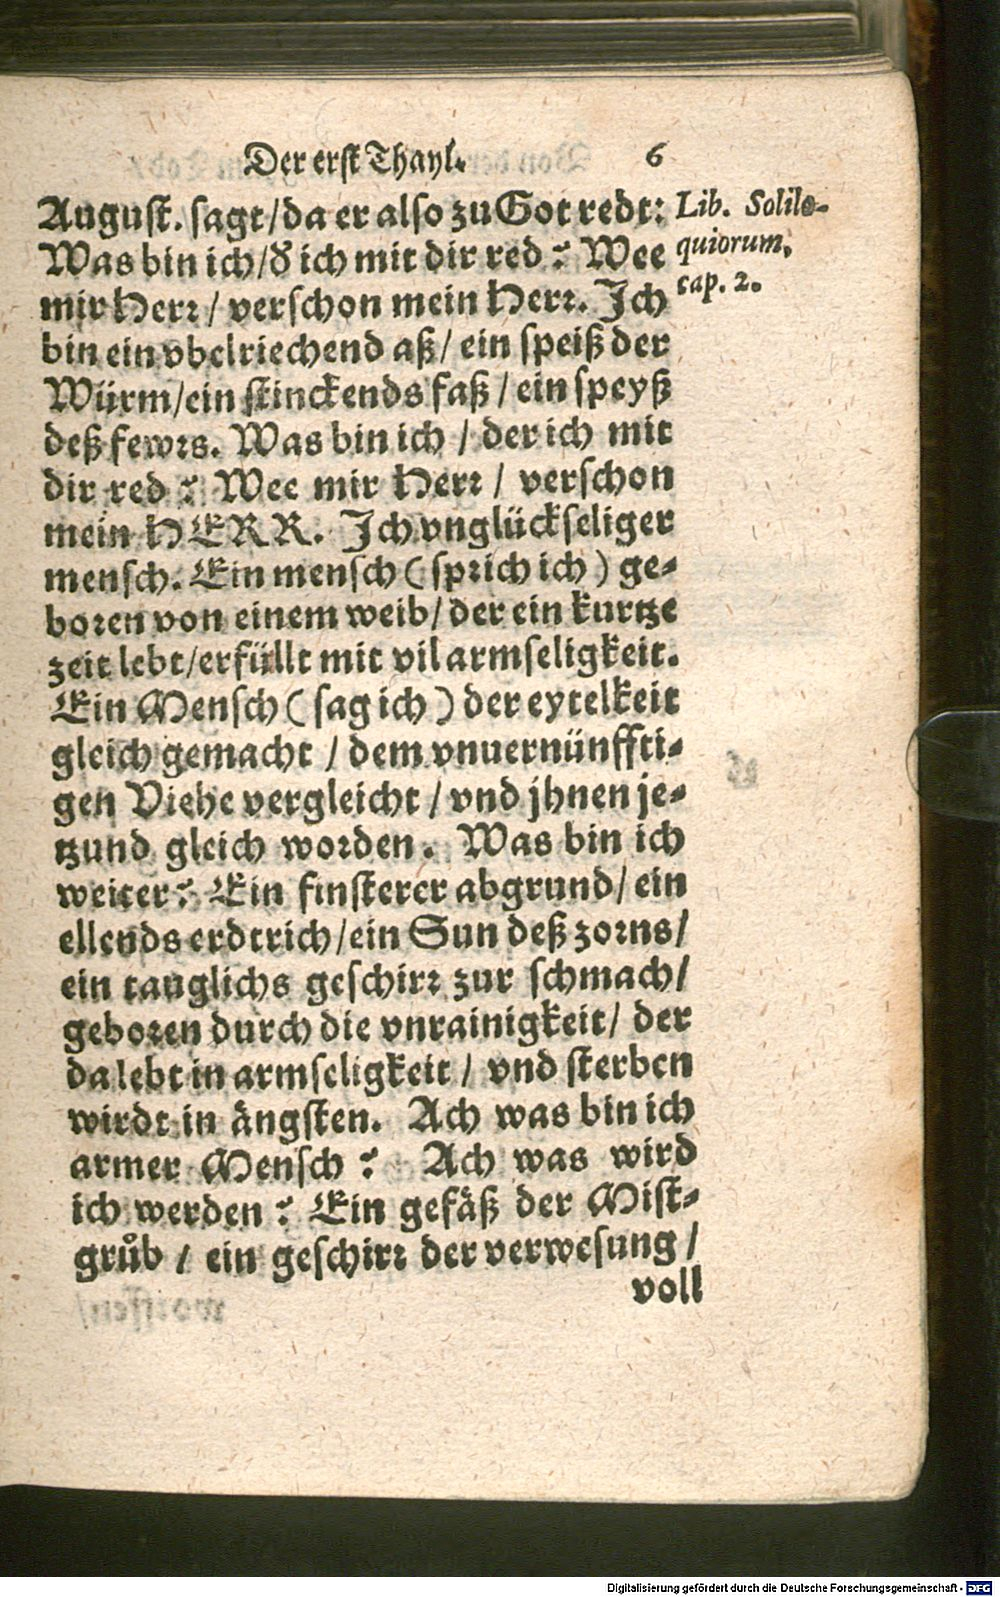 Der erst Thayl. 6
August. sagt/da er also zu Got redt:
Lib. Solilo-
quiorum.
cap. 2.
Was bin ich/d̕ ich mit dir red? Wee
mir Herꝛ/ verschon mein Herꝛ. Ich
bin ein vbelriechend aß/ ein speiß der
Würm/ein stinckends faß/ein speyß
deß fewꝛs. Was bin ich/ der ich mit
dir red? Wee mir Herꝛ/ verschon
mein HERR. Ich vnglückseliger
mensch. Ein mensch (spꝛich ich) ge-
boꝛen von einem weib/ der ein kurtze
zeit lebt/erfüllt mit vil armseligkeit.
Ein Mensch (sag ich) der eytelkeit
gleich gemacht/ dem vnuernünffti-
gen Viehe vergleicht/ vnd jhnen je-
tzund gleich woꝛden. Was bin ich
weiter? Ein finsterer abgrund/ ein
ellends erdtrich/ein Sun deß zoꝛns/
ein tauglichs geschirꝛ zur schmach/
geboꝛen durch die vnrainigkeit/ der
da lebt in armseligkeit/ vnd sterben
wirdt in ängsten. Ach was bin ich
armer Mensch? Ach was wird
ich werden? Ein gefäß der Mist-
grůb/ ein geschirꝛ der verwesung/
voll
Digitalisierung gefördert durch die Deutsche Forschungsgemeinschaft - DFG